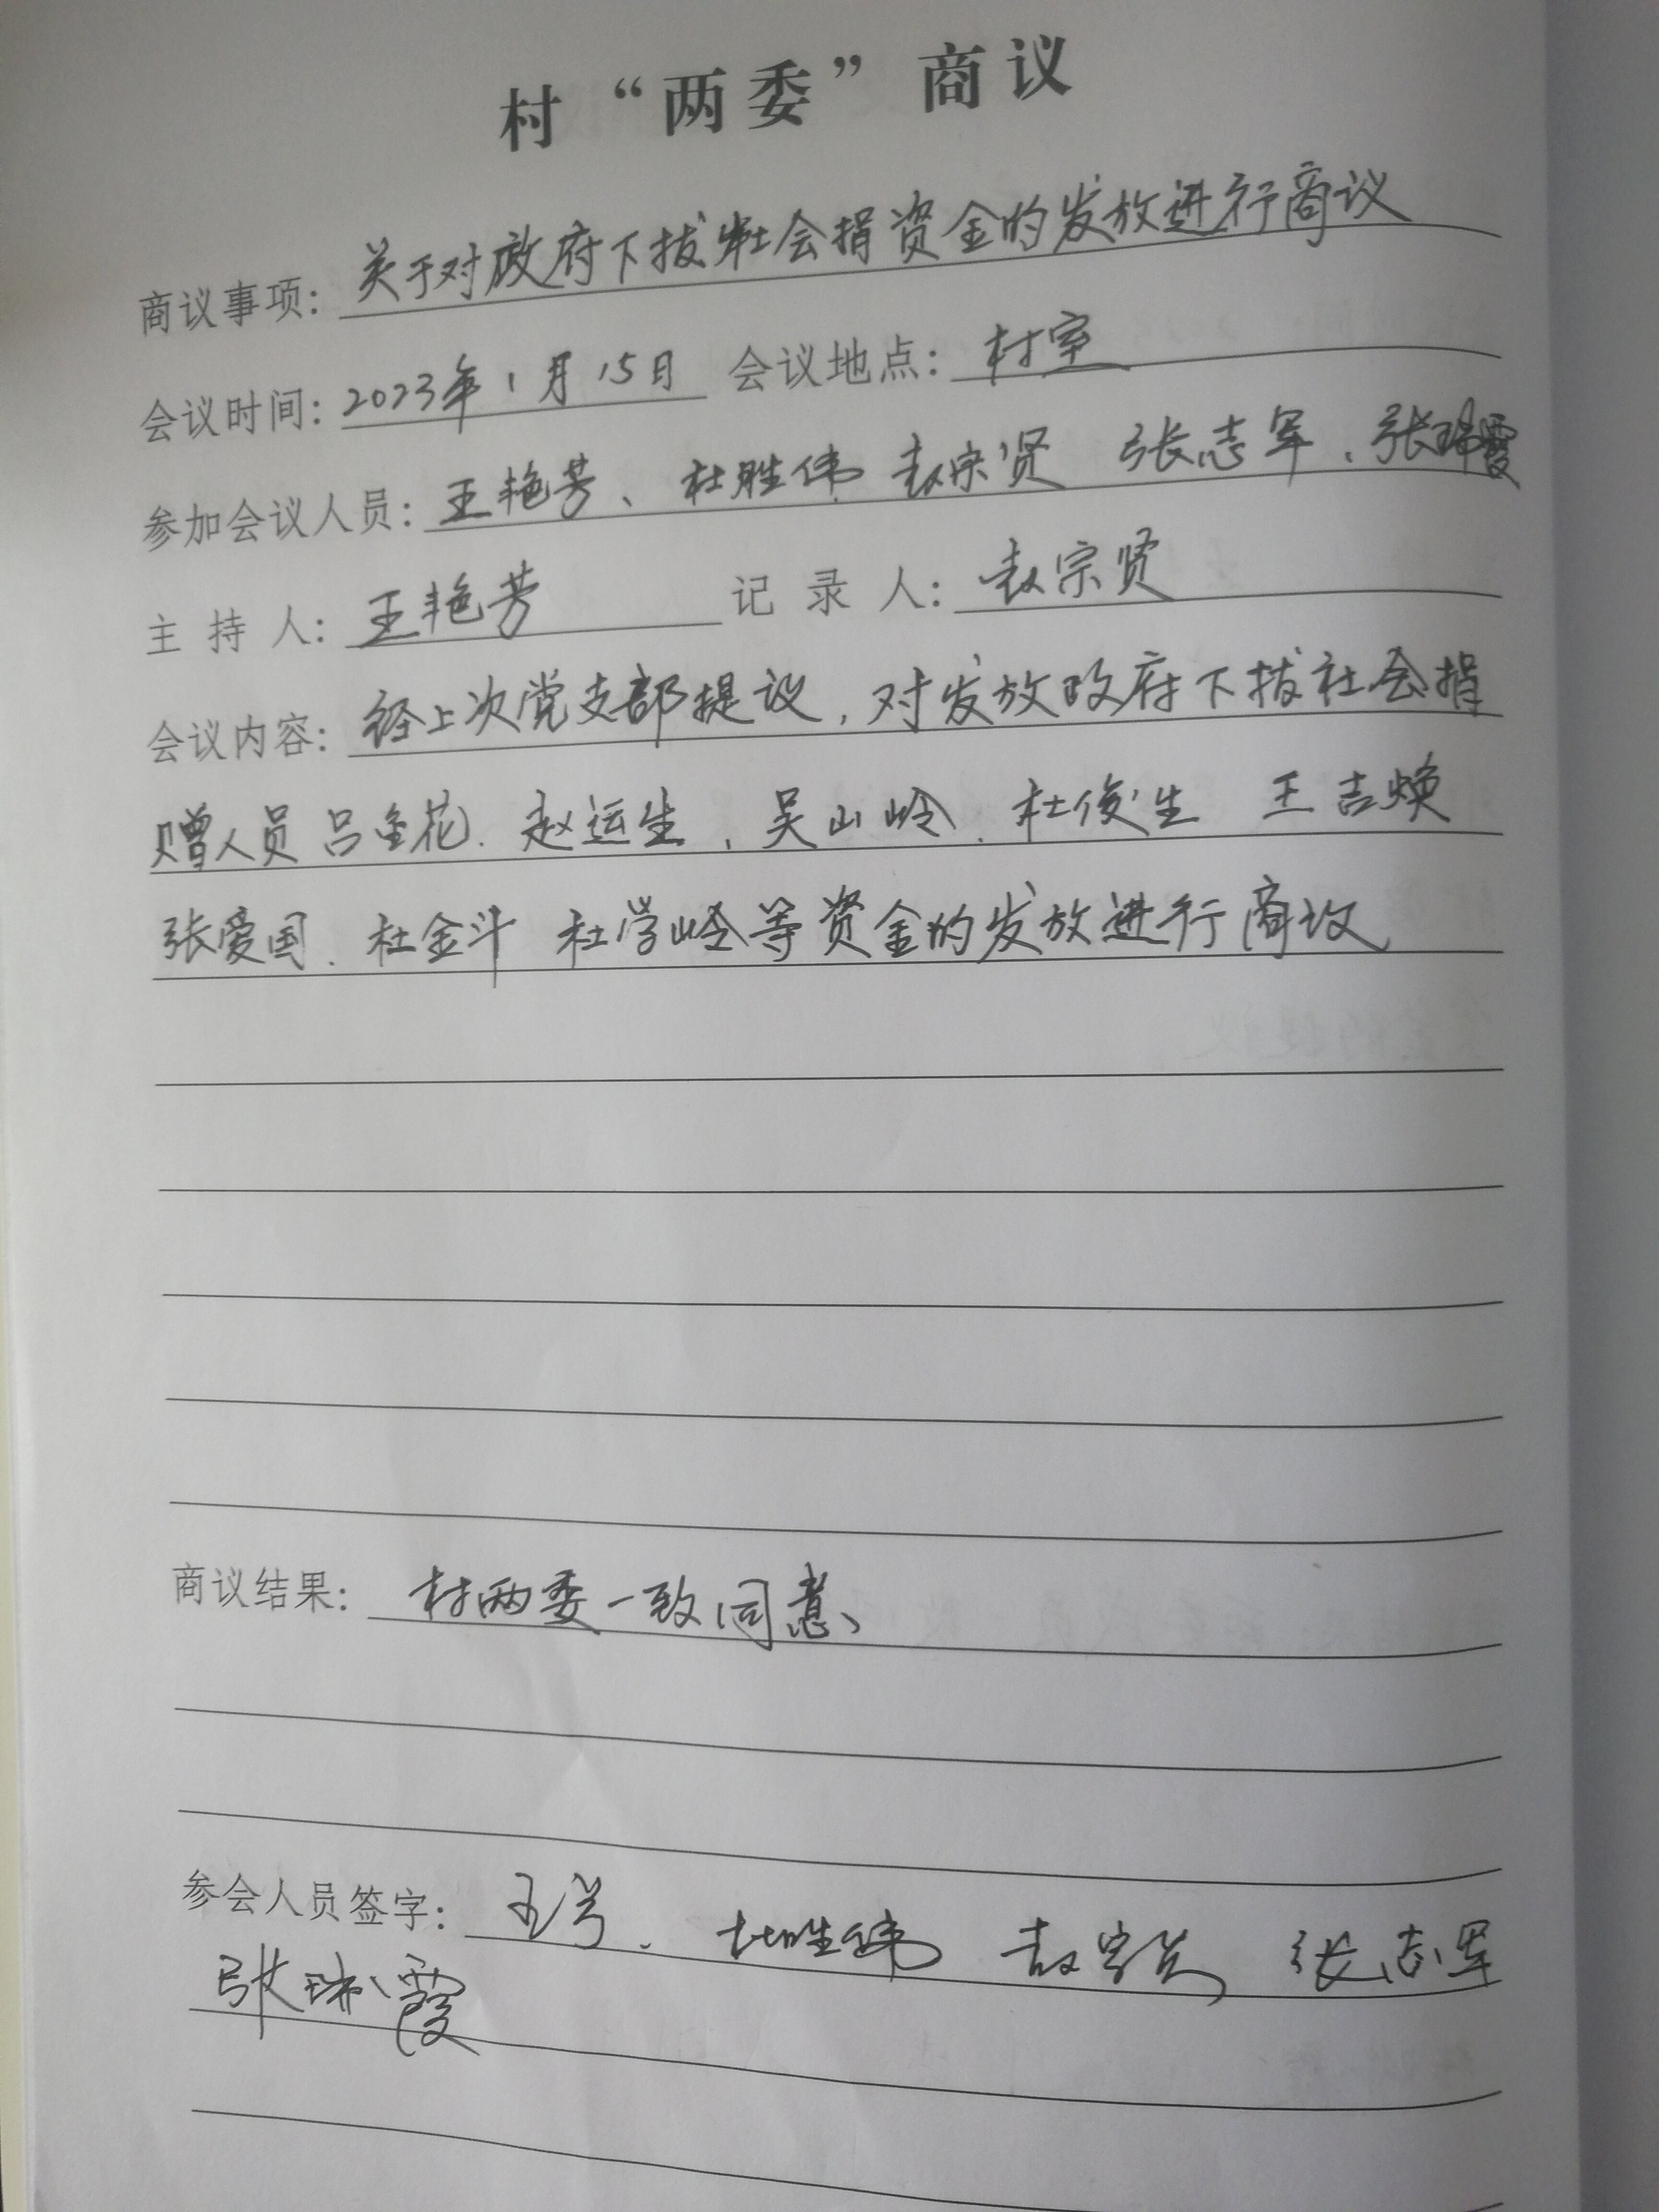 村“两委”商议
商议事项：关于对政府下拔社会捐资金的发放进行商议
会议时间：2023年1月15日 会议地点：村室
参加会议人员：王艳芳、杜胜伟 赵宗贤 张志军、张瑞霞
主持人：王艳芳 记录人：赵宗贤
会议内容：经上次党支部提议，对发放政府下拔社会捐
赠人员吕金花、赵运生，吴山岭、杜俊生 王吉焕
张爱国、杜金斗 杜学岭等资金的发放进行商议
商议结果：村两委一致同意、
参会人员签字：王芳、杜胜伟 赵宗贤 张志军
张瑞霞